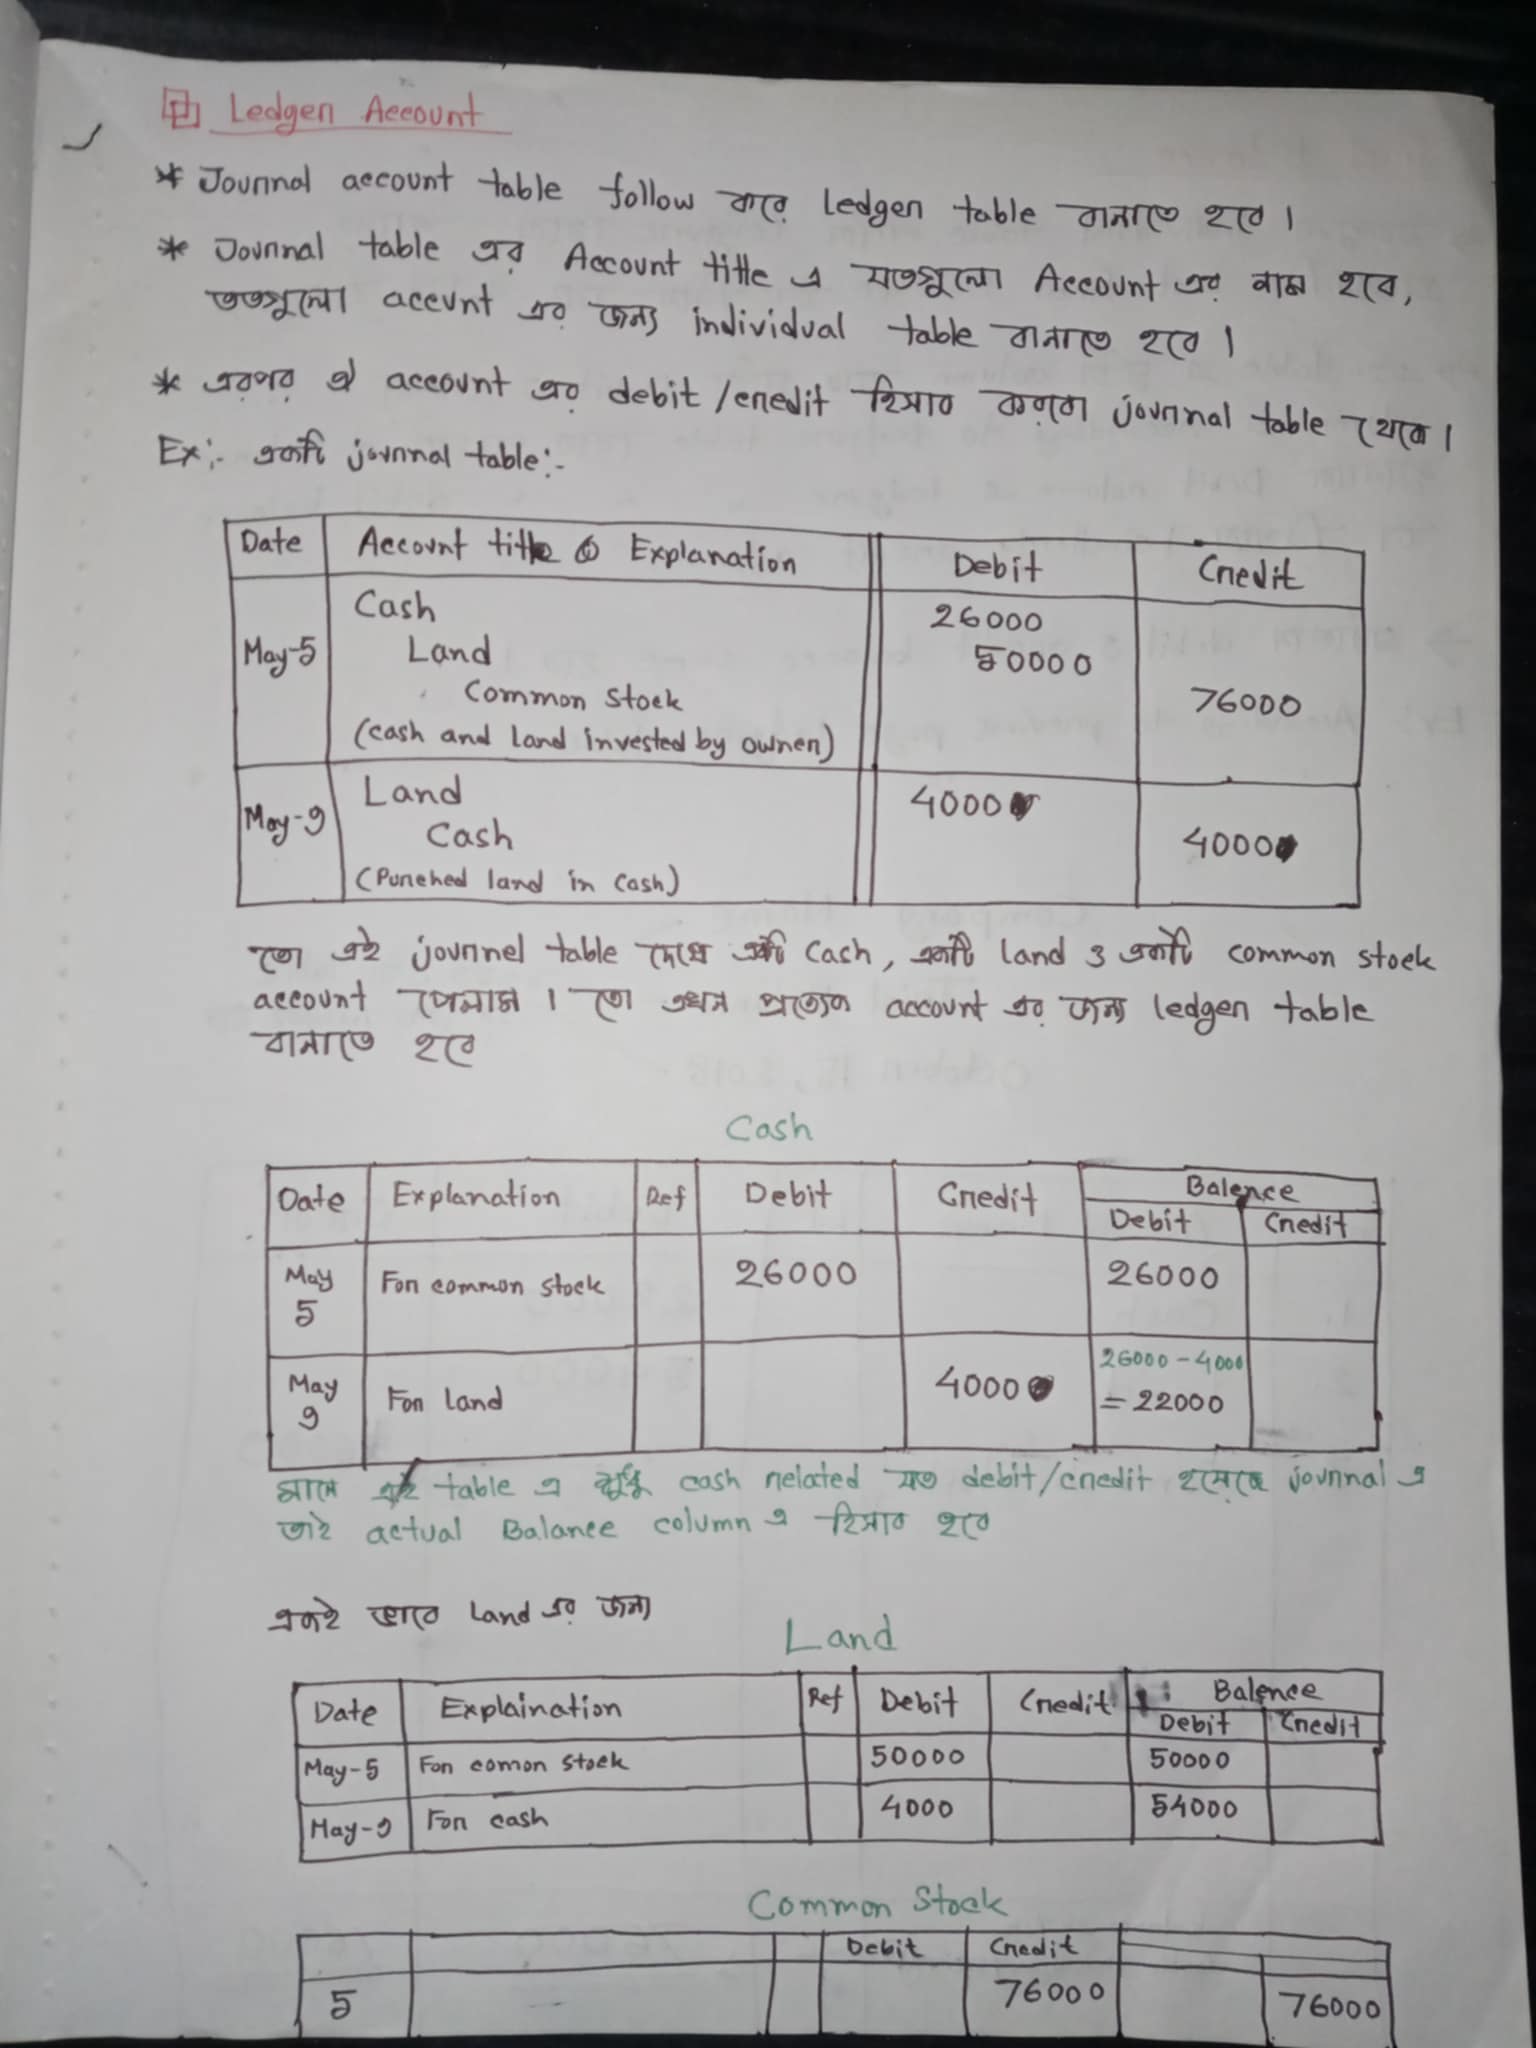 Ledger Account
* Journal account table follow করে Ledger table বানাতে হবে।
* Journal table এর Account title এ যতগুলো Account এর নাম হবে,
ততগুলো accunt এর জন্য individual table বানাতে হবে।
* এরপর ঐ account এর debit/credit হিসাব করবো journal table থেকে।
Ex:- একটি journal table:-
Date Account title & Explanation Debit Credit
May-5 Cash 26000
Land 50000
Common Stock 76000
(cash and land invested by owner)
May-9 Land 4000
Cash 4000
(Purched land in cash)
তো এই journel table দেখে একটি Cash, একটি land ও একটি common stock
account পেলাম। তো এখন প্রত্যেক account এর জন্য ledger table
বানাতে হবে
Cash
Date Explanation Ref Debit Credit Balence
Debit Credit
May 5 For common stock 26000 26000
May 9 For land 4000 26000-4000
= 22000
মানে এই table এ শুধু cash related যত debit/credit হয়েছে journal এ
তাই actual Balance column এ হিসাব হবে
একই ভাবে Land এর জন্য
Land
Date Explaination Ref Debit Credit Balence
Debit Credit
May-5 For comon stock 50000 50000
May-9 For cash 4000 54000
Common Stock
Debit Credit
5 76000 76000